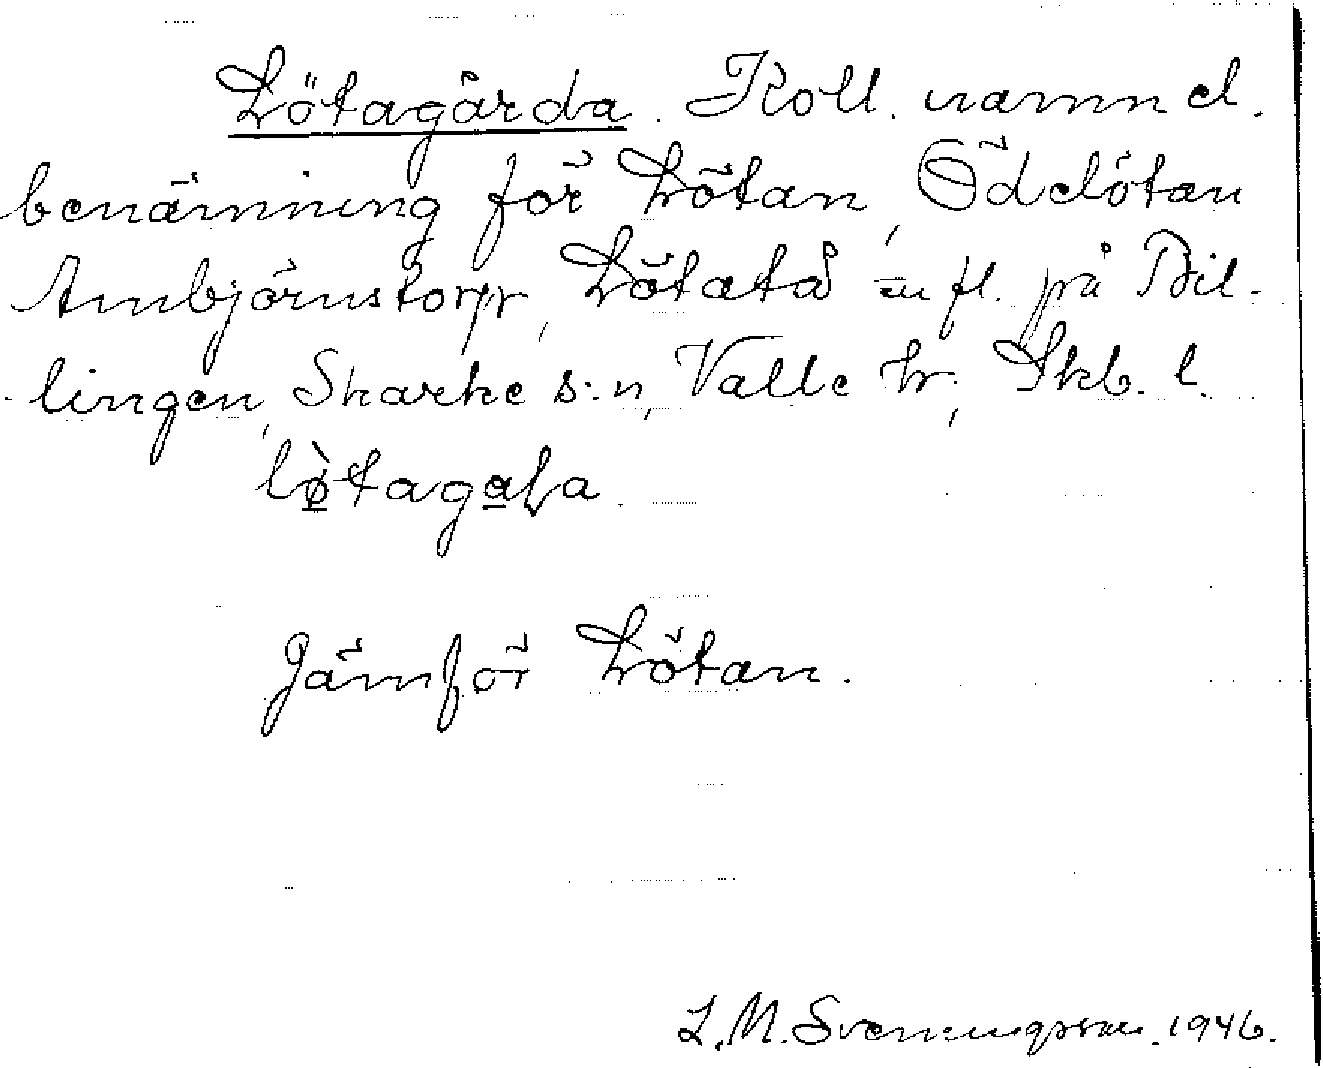 Lötagårda. Koll. namn el.
benämning för Lötan, Ödelötan
Ambjörnstorp, Lötatå m fl. på Bil-
lingen, Skarke s:n, Valle hr, Skb. l.
lø̀tagaɽa.
Jämför Lötan.
L.M. Svenungsson. 1946.